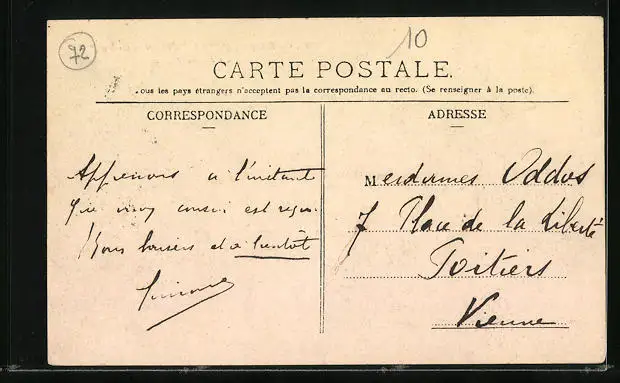 72
10
CARTE POSTALE.
ous les pays étrangers n'acceptent pas la correspondance au recto. (Se renseigner à la poste).
CORRESPONDANCE
ADRESSE
Apprenons à l'instant
que mon cousin est reçu.
Bons baisers et à bientôt
Simone
Mesdames Oddos
7 Place de la Liberté
Poitiers
Vienne